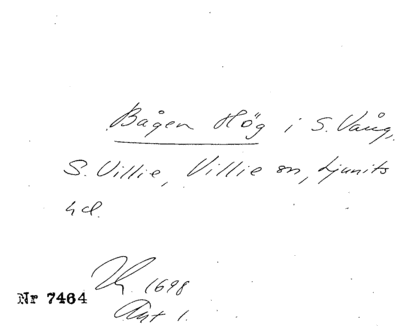 Bågen Hög i S. Vång,
S. Villie, Villie sn, Ljunits
hd.
1698
Nr 7464
Akt 1.